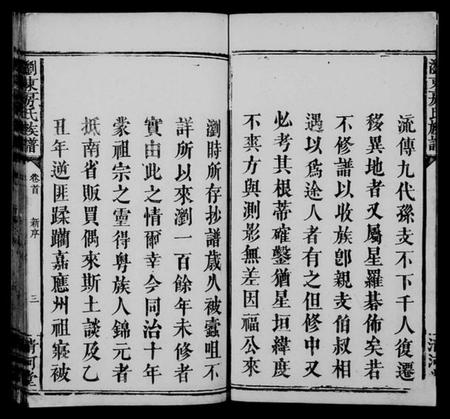 流傳九代孫支不下千人復遷
移異地者又屬星羅碁佈矣若
不修譜以收族卽親支伯叔相
遇以為途人者有之但修中又
必考其根蒂確鑿猶星垣緯度
不爽方與測影無差因福公來
瀏時所存抄譜歲久被蠹咀不
詳所以來瀏一百餘年未修者
實由此之情爾幸今同治十年
蒙祖宗之靈得粵族人錦元者
抵南省販買偶來斯土談及乙
丑年逆匪蹂躪嘉應州祖寢被
瀏東房氏族譜
卷首
新序
三
清河堂